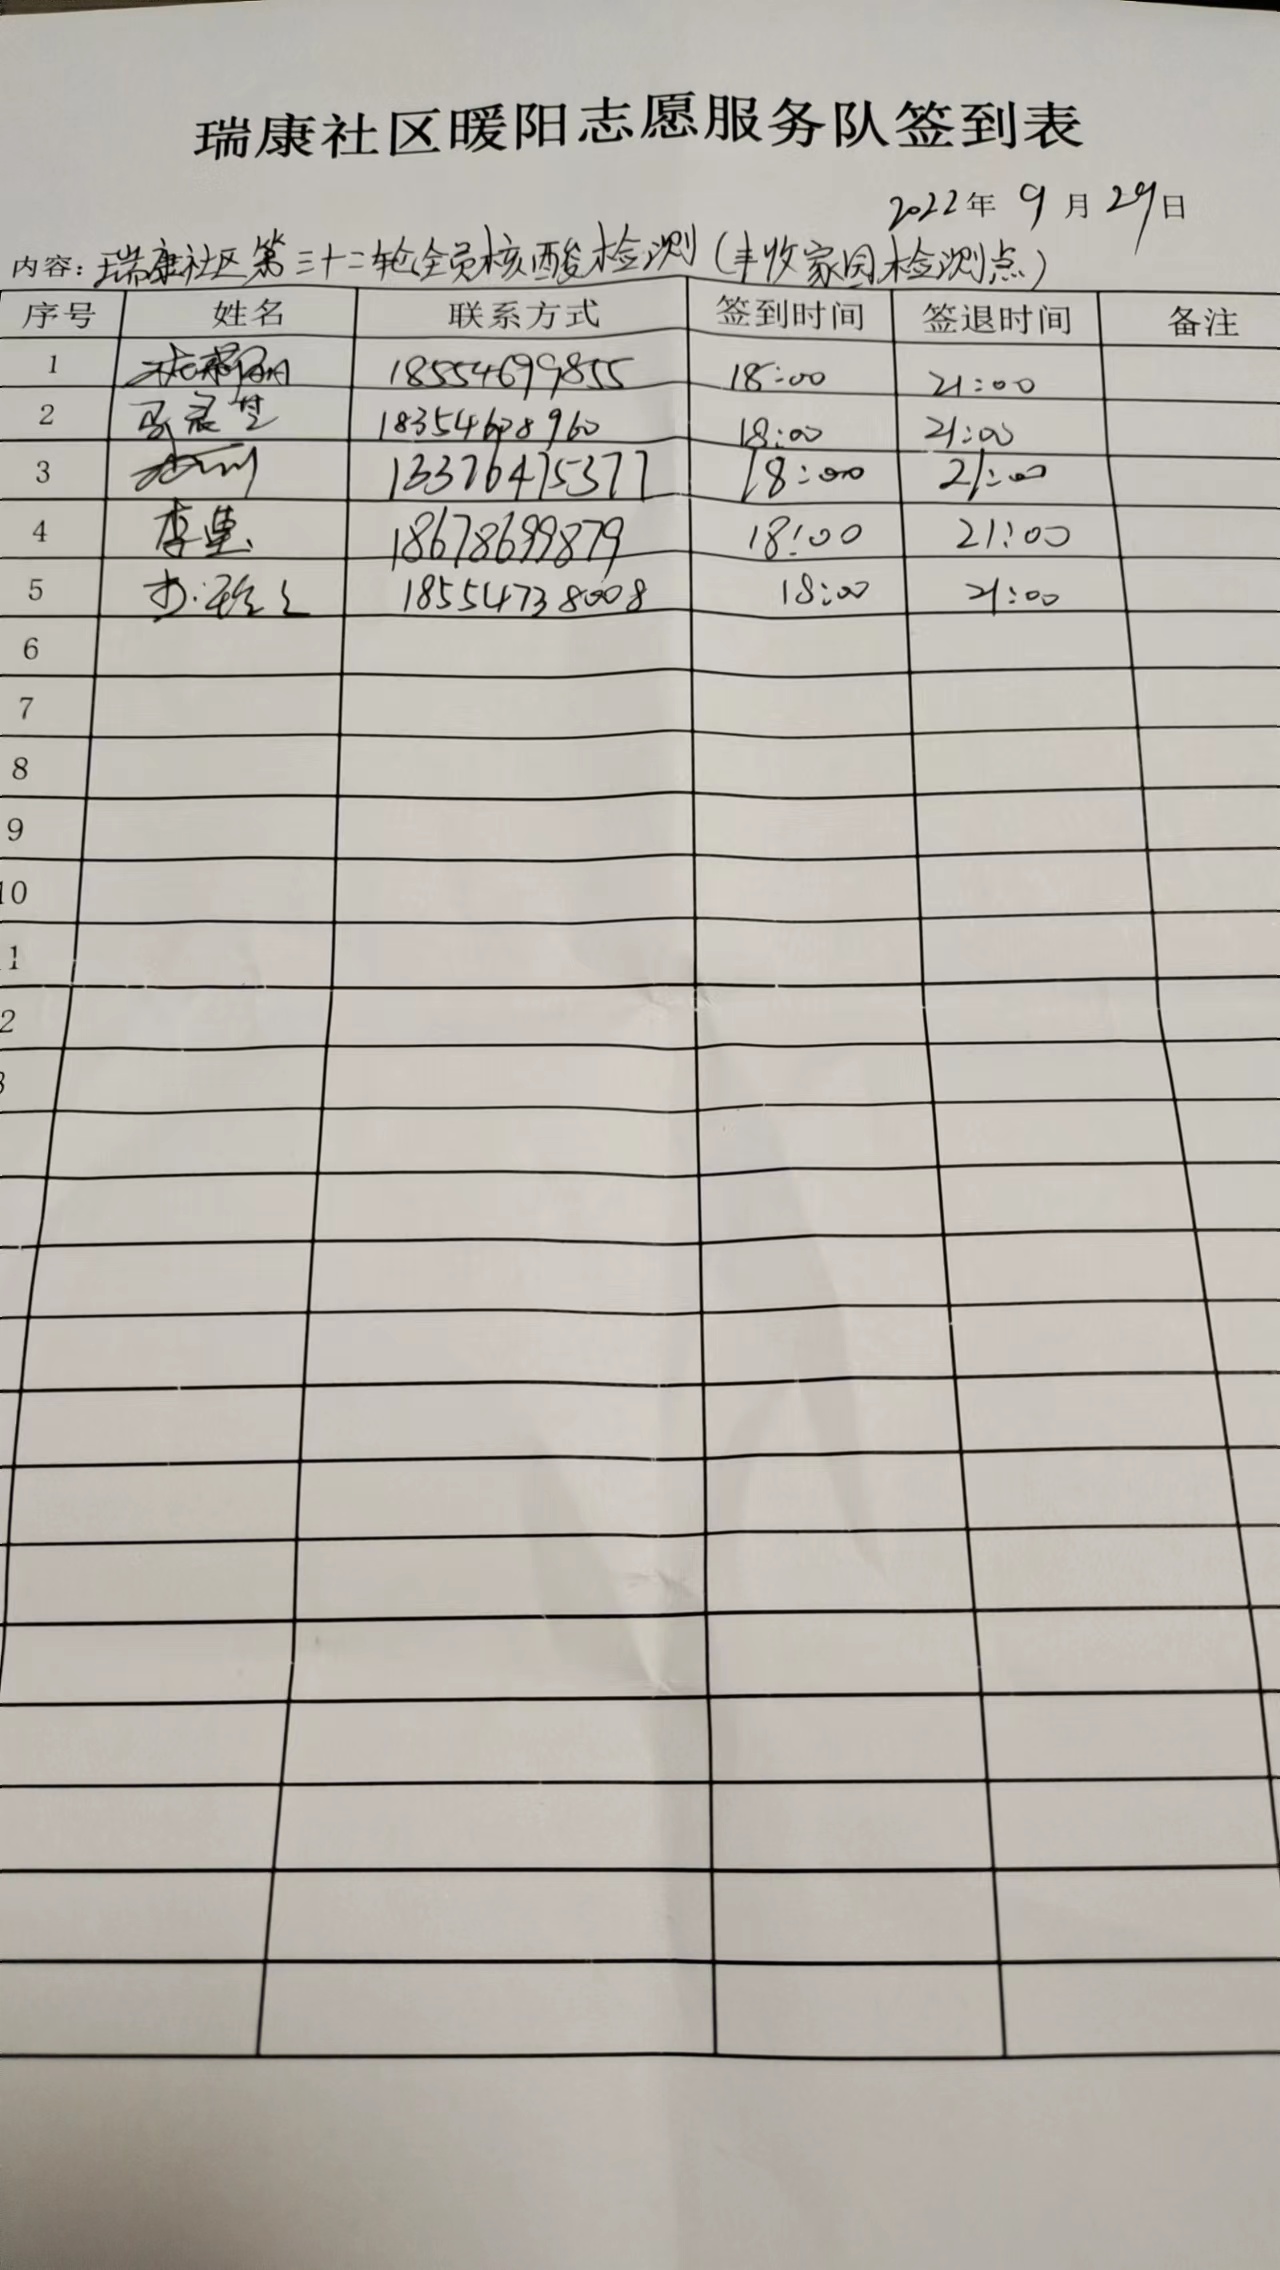 瑞康社区暖阳志愿服务队签到表
2022年 9月 29日
内容：瑞康社区第三十二轮全员核酸检测（丰收家园检测点）
序号 姓名 联系方式 签到时间 签退时间 备注
1 18554699855 18:00 21:00
2 18354608960 18:00 21:00
3 13376475377 18:00 21:00
4 18678699879 18:00 21:00
5 18554738008 18:00 21:00
6
7
8
9
10
1
2
3